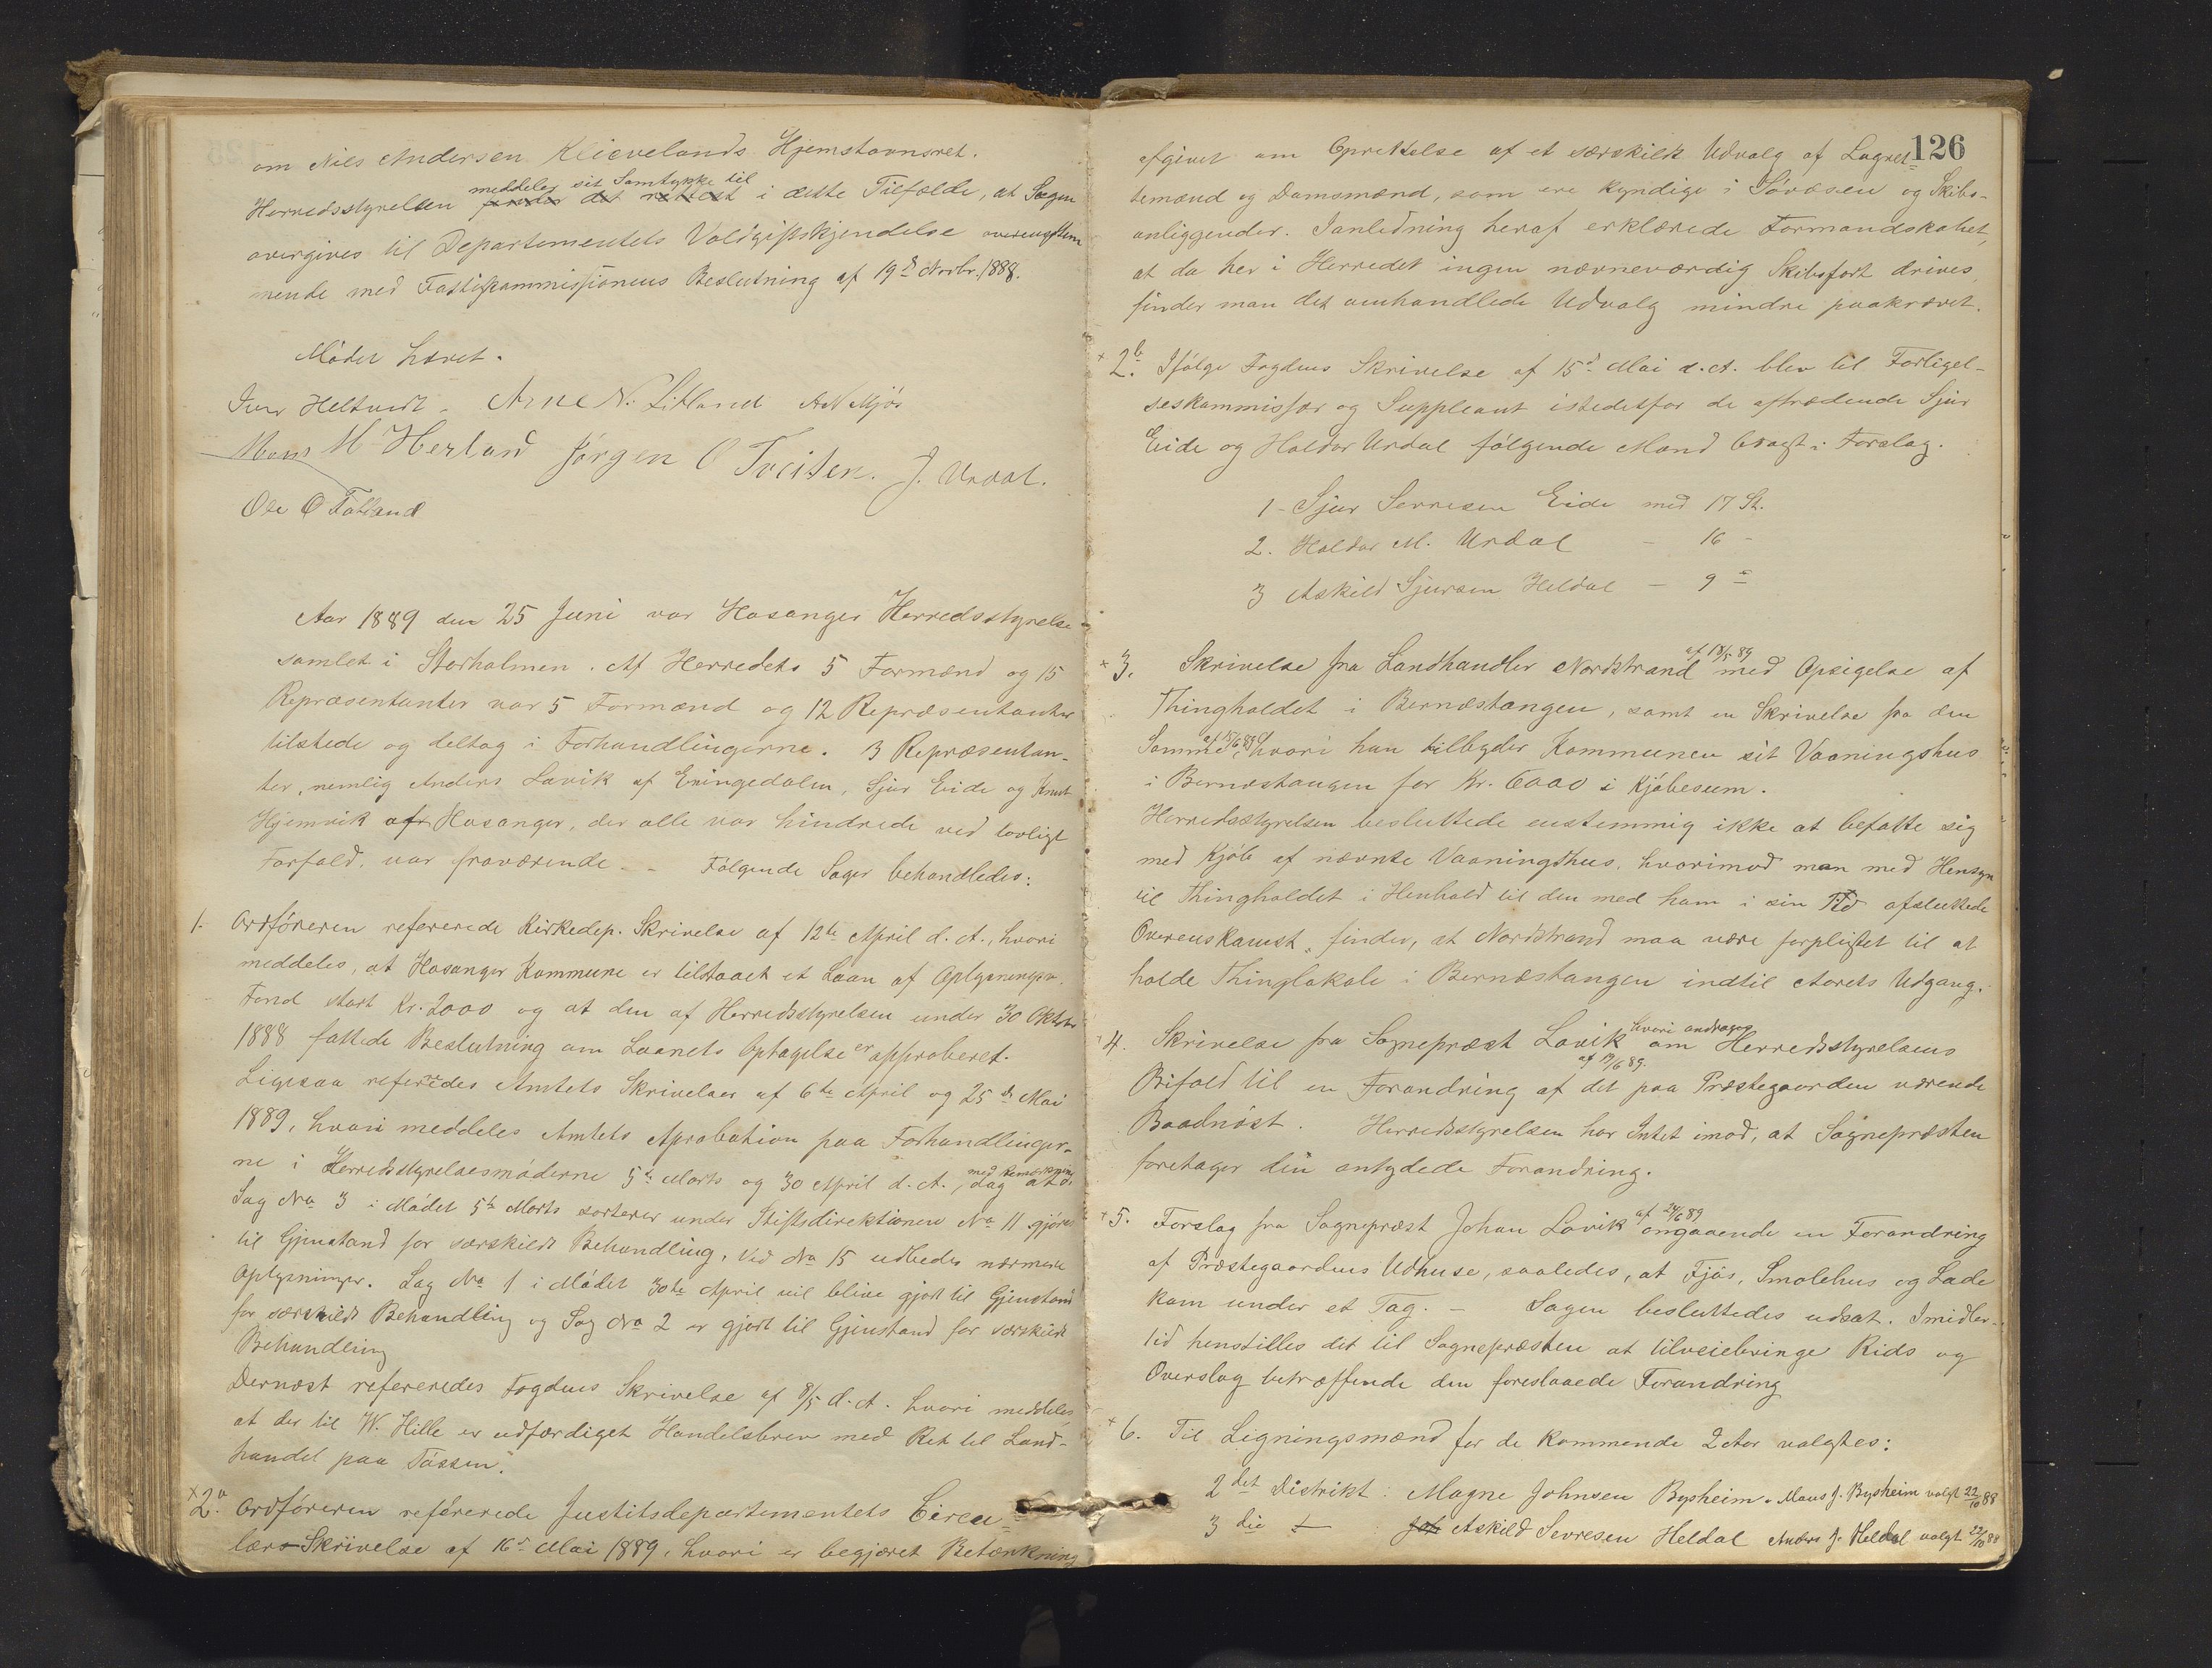 om Niels Andersen Klievelands Hjemstavnsret.
meddeles sit Samtykke til
Herredsstyrelsen finder det rettest i dette Tilfælde, at Sagen
overgives til Departementets Voldgiftskjendelse overenstem
mende med Fattigkommissionens Beslutning af 19d Novbr. 1888.
Mødet hævet.
Iver Heltvedt. Arne N. Litland AN Mjøs
Mons M Herland Jørgen O Tveiten. J. Urdal.
Ole O Fatland
Aar 1889 den 25 Juni var Hosanger Herredsstyrelse
samlet i Storholmen. Af Herredets 5 Formænd og 15
Repræsentanter var 5 Formænd og 12 Repræsentanter
tilstede og deltog i Forhandlingerne. 3 Repræsentan-
ter, nemlig Anders Lavik af Exingedalen, Sjur Eide og Knut
Hjemvik af Hosanger, der alle var hindrede ved lovligt
Forfald, var fraværende. - Følgende Sager behandledes:
1. Ordføreren refererede Kirkedep. Skrivelse af 12te April d. A., hvori
meddeles, at Hosanger Kommune er tilstaaet et Laan af Oplysningsv.
Fond stort Kr. 2000 og at den af Herredsstyrelsen under 30 Oktober
1888 fattede Beslutning om Laanets Optagelse er approberet.
Ligesaa refereredes Amtets Skrivelser af 6te April og 25de Mai
1889, hvori meddeles Amtets Aprobation paa Forhandlinger-
ne i Herredsstyrelsesmøderne 5te Marts og 30 April d. A., med Bemærkning at
Sag No 3 i Mødet 5te Marts sorterer under Stiftsdirektionen No 11 gjøres
til Gjenstand for særskildt Behandling, Ved No 15 udbedes nærmere
Oplysninger. Sag No 1 i Mødet 30te April vil blive gjort til Gjenstand
for særskildt Behandling og Sag No 2 er gjort til Gjenstand for særskildt
Behandling
Dernæst refereredes Fogdens Skrivelse af 8/5 d. A. hvori meddeles,
at der til W. Hille er udfærdiget Handelsbrev med Ret til Land-
handel paa Tøssen.
x 2.a Ordføreren refererede Justitsdepartementets Circu-
lære-Skrivelse af 16d Mai 1889, hvori er begjæret Betænkning
126
afgivet om Oprettelse af et særskilt Udvalg af Lagret-
temænd og Domsmænd, som ere kyndige i Søvæsen og Skibs-
anliggender. I anledning heraf erklærede Formandskabet,
at da her i Herredet ingen nævneværdig Skibsfart drives,
finder man det omhandlede Udvalg mindre paakrævet.
x 2.b Ifølge Fogdens Skrivelse af 15d Mai d. A. blev til Forligel-
seskommissær og Suppleant istedetfor de aftrædende Sjur
Eide og Haldor Urdal følgende Mænd bragt i Forslag.
1 - Sjur Sevresen Eide med 17 St.
2. Haldor M. Urdal - 16 -
3 Askild Sjursen Heldal - 9 -
x 3. Skrivelse fra Landhandler Nordstrand af 18/5 89 med Opsigelse af
Thingholdet i Bernæstangen, samt en Skrivelse fra den
Samme af 15/6 89, hvori han tilbyder Kommunen sit Vaaningshus
i Bernæstangen for Kr. 6000 i Kjøbesum.
Herredsstyrelsen besluttede enstemmig ikke at befatte sig
med Kjøb af nævnte Vaaningshus, hvorimod man med Hensyn
til Thingholdet i Henhold til den med ham i sin Tid afsluttede
Overenskomst, finder, at Nordstrand maa være forpligtet til at
holde Thinglokale i Bernæstangen indtil Aarets Udgang.
4. Skrivelse fra Sognepræst Lavik af 19/6 89. hvori andrages om Herredsstyrelsens
Bifald til en Forandring af det paa Præstegaarden værende
Baadnøst. Herredsstyrelsen har Intet imod, at Sognepræsten
foretager den antydede Forandring.
x 5. Forslag fra Sognepræst Johan Lavik af 24/6 89 angaaende en Forandring
af Præstegaardens Udhuse, saaledes, at Fjøs, Smalehus og Lade
kom under et Tag. - Sagen besluttedes udsat. Imidler-
tid henstilles det til Sognepræsten at tilveiebringe Rids og
Overslag betræffende den foreslaaede Forandring
x 6. Til Ligningsmænd for de kommende 2 Aar valgtes:
2det Distrikt: Magne Johnsen Bysheim. Mons J. Bysheim valgt 22/10 88
3die - : Joh Askild Sevresen Heldal Anders J. Heldal valgt 22/10 88